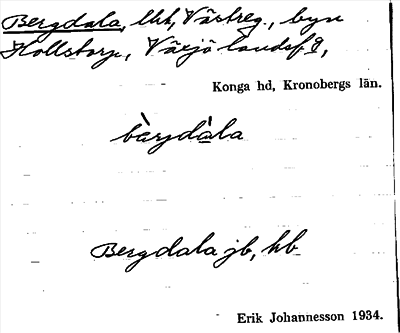 Bergdala, lht, Västreg., byn
Hollstorp, Växjö landsf.g,
Konga hd, Kronobergs län.
bàrjdàla
Bergdala jb, kb
Erik Johannesson 1934.